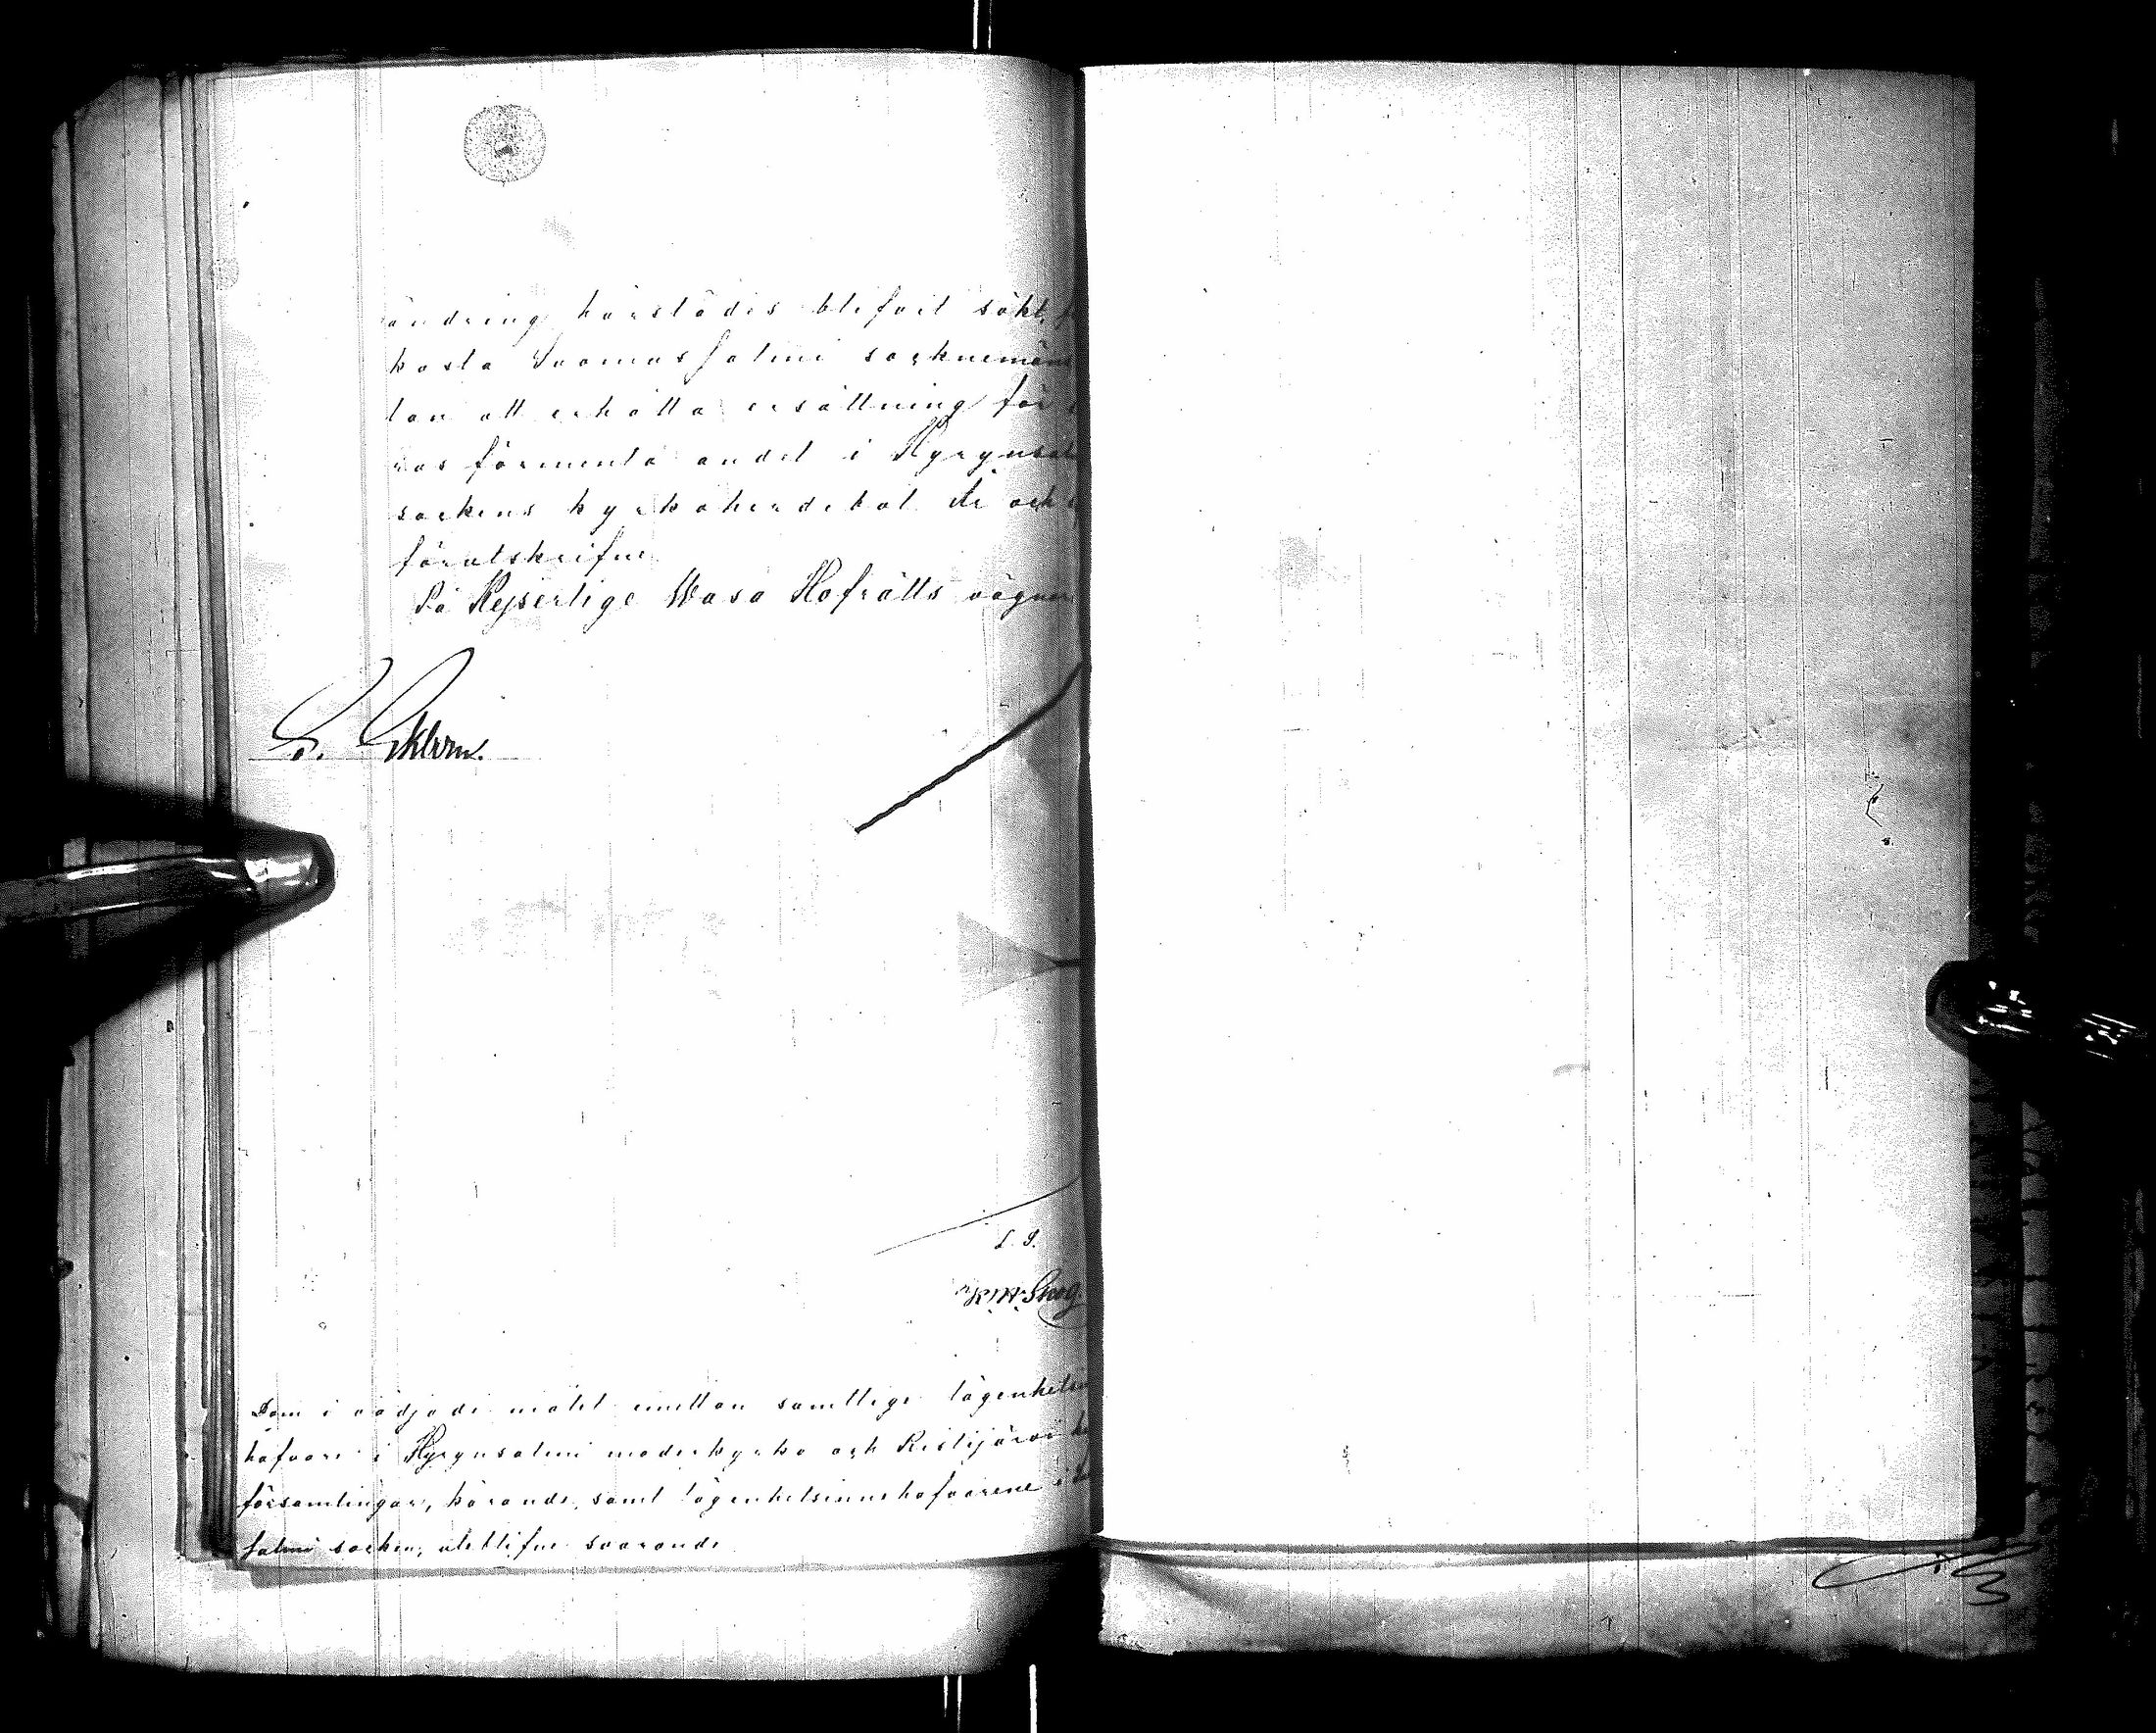 ändring härstädes blifvit sökt,
kosta Suomussalmi socknemäns
tan att erhålla ersättning för
ras förmenta andel i Hyrynsal
sockens kyrkoherdebol. År och
förutskrifne.
På Kejserlige Wasa Hofrätts vägnar
L. S.
K. W. Skog
Dom i vädjade målet emellan samtlige lägenhetsin
hafvare i Hyrynsalmi moderkyrko och Ristijärvi
församlingar, kärande, samt lägenhetsinnehafvarene i
salmi socken, uteblifne svarande.